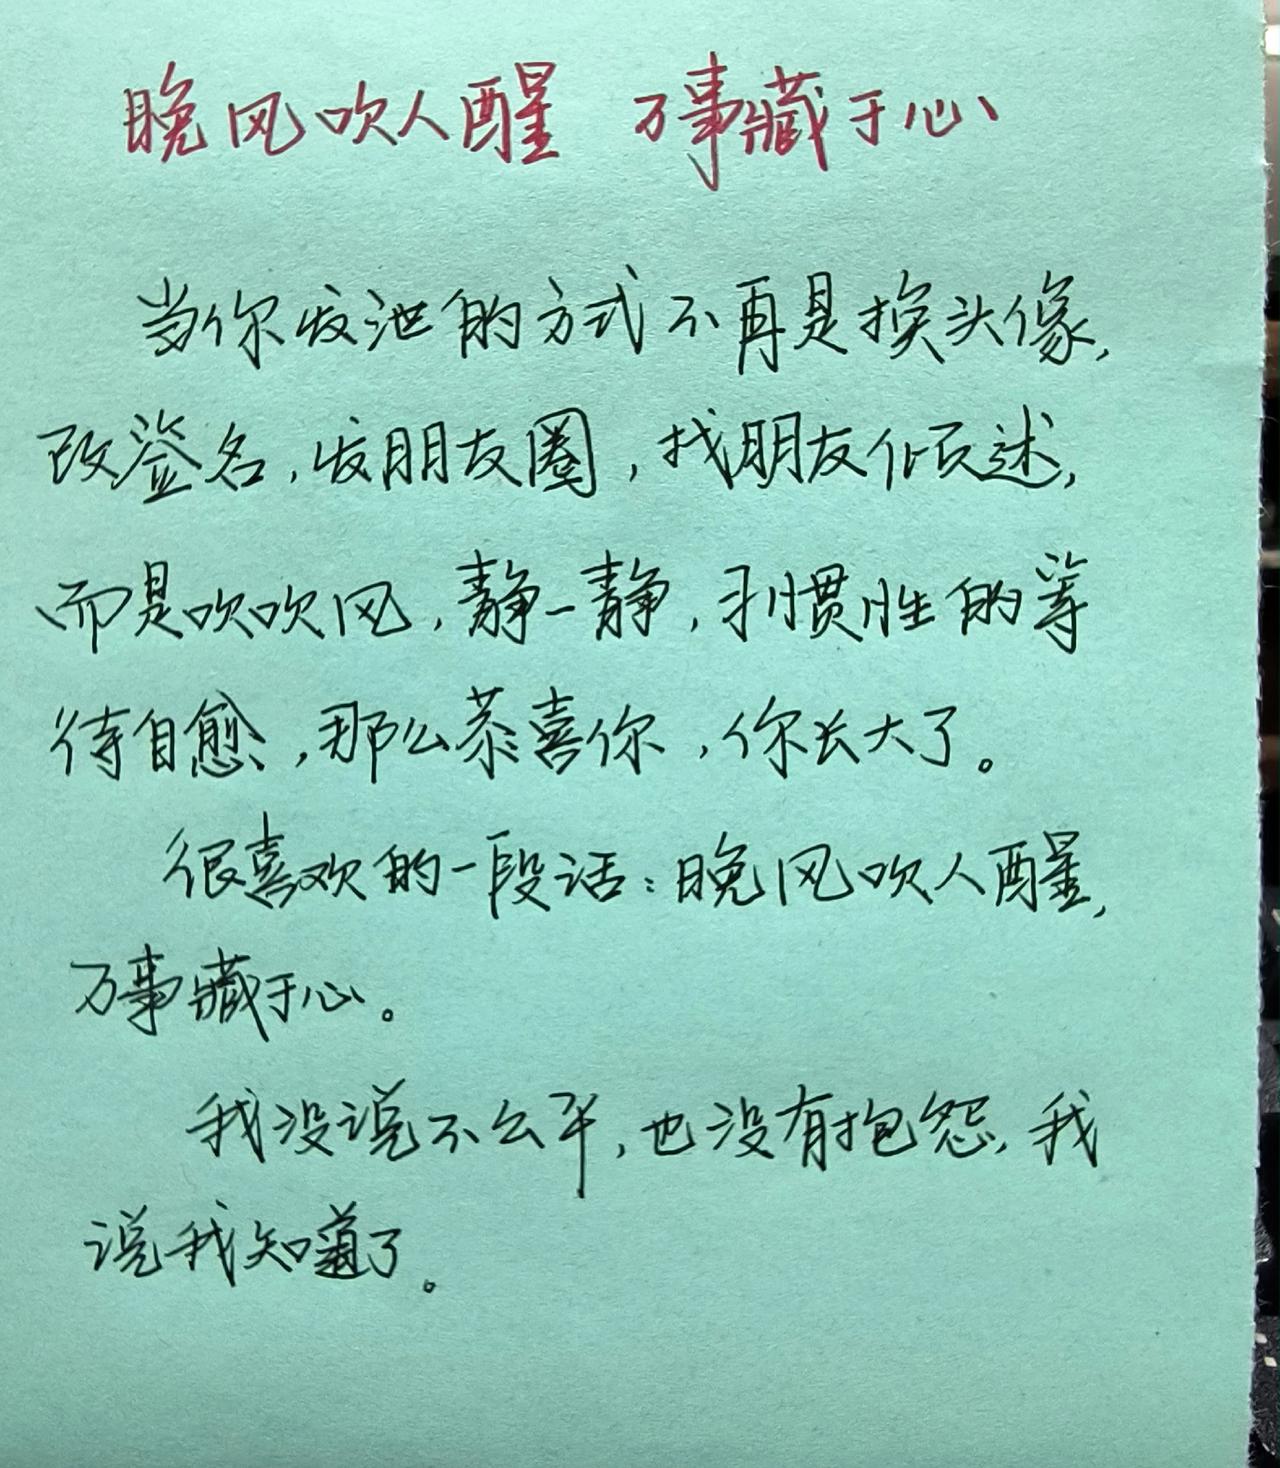 晚风吹人醒 万事藏于心
当你发泄的方式不再是换头像,
改签名,发朋友圈,找朋友倾述,
而是吹吹风,静一静,习惯性的等
待自愈,那么恭喜你,你长大了。
很喜欢的一段话:晚风吹人醒,
万事藏于心。
我没说不公平,也没有抱怨,我
说我知道了。